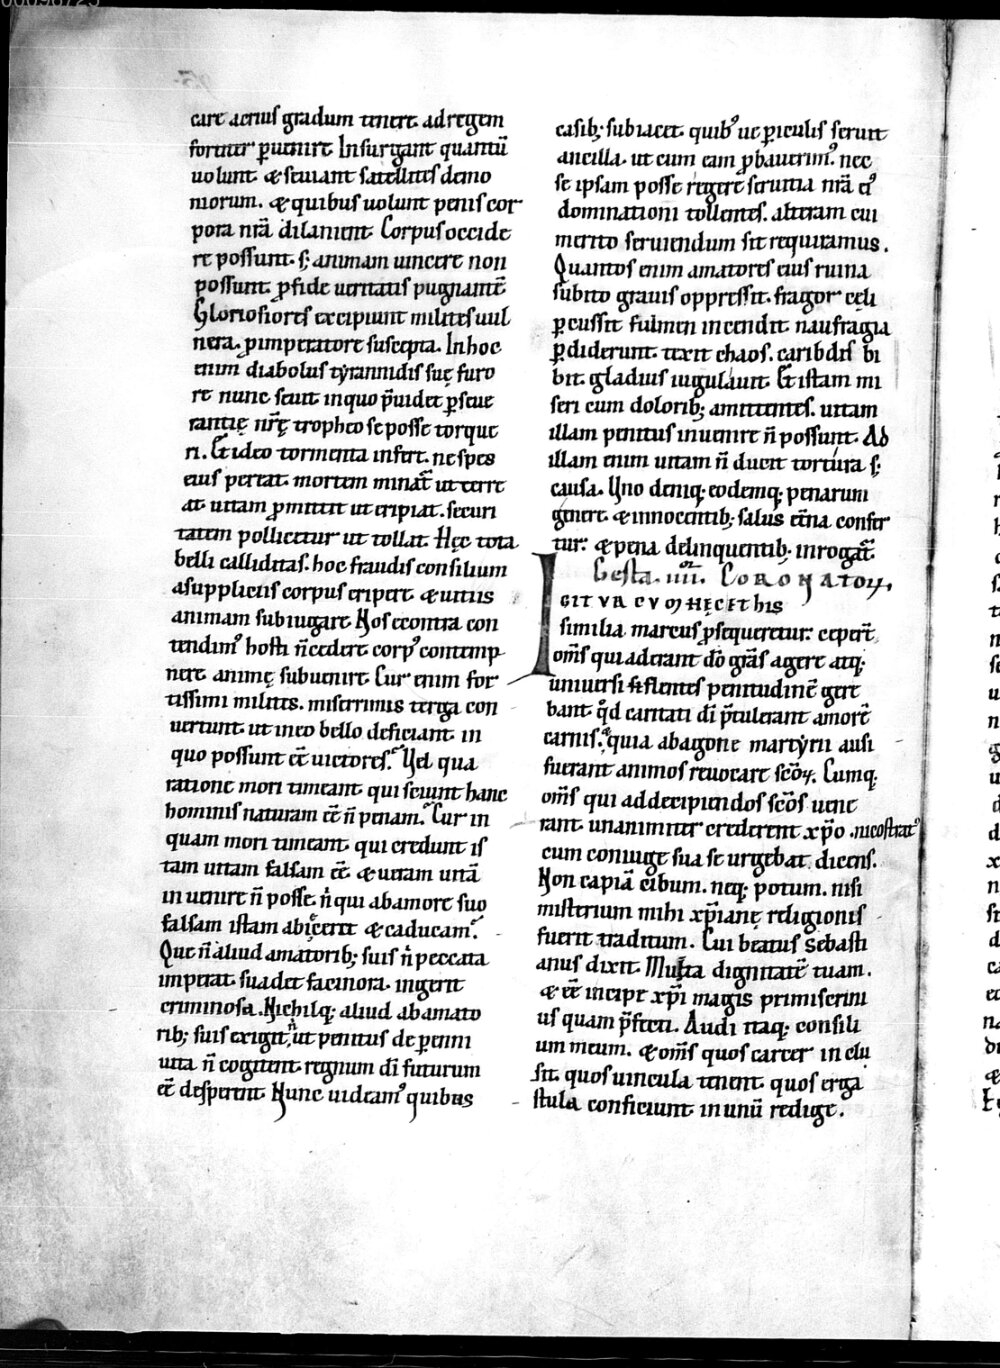 care acrius gradum tenere. ad regem
fortiter ꝑuenire. Insurgant quantū
uolunt. & seuiant satellites demo
niorum. & quibus uolunt penis cor
pora nr̄a dilanient. Corpus occide
re possunt. s; animam uincere non
possunt. ꝓ fide ueritatis pugnantē.
Gloriosiores excipiunt milites uul
nera. ꝓ imperatore suscepta. In hoc
enim diabolus tyrannidis suę furo
re nunc seuit. in quo p̄uidet ꝑseue
rantię nr̄ę tropheo se posse torque
ri. Et ideo tormenta infert. ne spes
eius pereat. mortem minat̄ ut terre
at. uitam ꝓmittit ut eripiat. securi
tatem pollicetur ut tollat. Hęc tota
belli calliditas. hoc fraudis consilium
a suppliciis corpus eripere. & uitiis
animam subiugare. Nos econtra con
tendim᾽ hosti n̄ cedere. corp᾽ contemp
nere. animę subuenire. Cur enim for
tissimi milites. miserrimis terga con
uertunt. ut in eo bello deficiant. in
quo possunt eē uictores. Vel qua
ratione mori timeant. qui sciunt hanc
hominis naturam eē n̄ penam. Cur in
quam mori timeant. qui credunt is
tam uitam falsam eē. & ueram uitā
inuenire n̄ posse. n̍ qui ab amore suo
falsam istam abiecerit & caducam.
Que n̄ aliud amatorib; suis n̍ peccata
imperat. suadet facinora. ingerit
criminosa. Nichilq; aliud ab amato
rib; suis exigit. n̍ ut penitus de perenni
uita n̄ cogitent. regnum di̅ futurum
eē desperent. Nunc uideam᾽ quibus
casib; subiacet. quib᾽ ue ꝑiculis seruit
ancilla. ut cum eam ꝓbauerim᾽ nec
se ipsam posse regere. seruitia nr̄a ei᾽
dominationi tollentes. alteram cui
merito seruiendum sit requiramus.
Quantos enim amatores eius ruina
subito grauis oppressit. fragor cęli
ꝑcussit. fulmen incendit. naufragia
ꝑdiderunt. texit chaos. caribdis bi
bit. gladius iugulauit. Et istam mi
seri cum dolorib; amittentes. uitam
illam penitus inuenire n̄ possunt. Ad
illam enim uitam n̄ ducit tortura s;
causa. Uno deniq; eodemq; penarum
genere. & innocentib; salus et̄na confer
tur. & pena delinquentib; inrogat̄.
Gesta. iiiior. CORONATOꝜ.
IGITVR CVM HĘC ET his
similia marcus ꝓsequeretur. cepert̄
om̄s qui aderant do̅ gra̅s agere. atq;
uniuersi flentes penitudinē gere
bant. qd̾ caritati di̅ p̄tulerant amorē
carnis. & quia ab agone martyrii ausi
fuerant animos reuocare sc̄oꝝ. Cumq;
om̄s qui ad decipiendos sc̄os uene
rant. unanimiter crederent xp̄o. nicostrat᾽
cum coniuge sua se urgebat. dicens.
Non capiā cibum. neq; potum. nisi
misterium mihi xp̄ianę religionis
fuerit traditum. Cui beatus sebasti
anus dixit. Muta dignitatē tuam.
& eē incipe xp̄i magis primiscrini
us quam p̄fecti. Audi itaq; consili
um meum. & om̄s quos carcer inclu
sit. quos uincula tenent. quos erga
stula conficiunt. in unū redige.